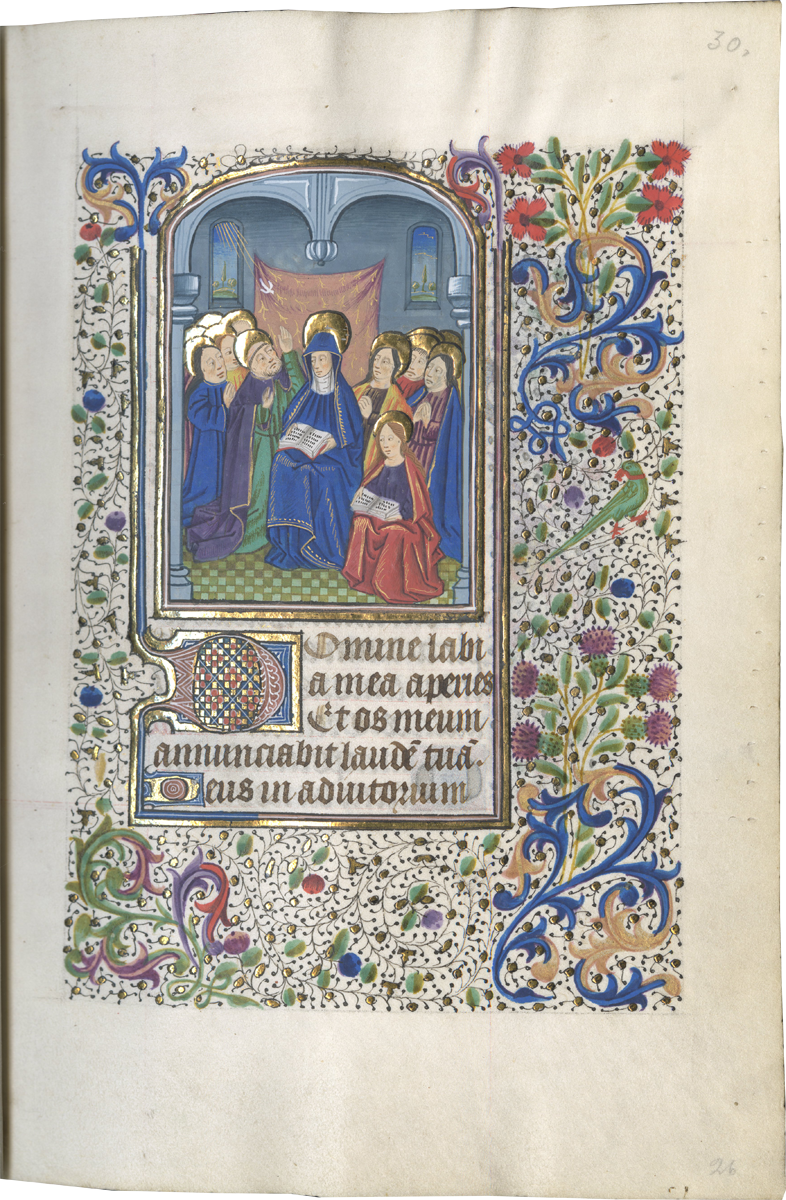 30,
Domine labi
a mea aperies
Et os meum
annunciabit laudē tuā.
Deus in adiutorium
26